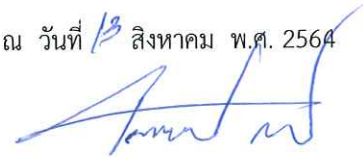 ณ วันที่ 13 สิงหาคม พ.ศ. 2564